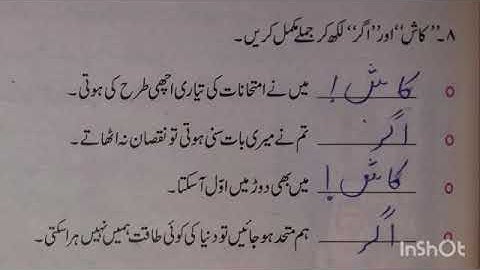 ۸۔ ”کاش“ اور ”اگر“ لکھ کر جملے مکمل کریں۔
کاش! میں نے امتحانات کی تیاری اچھی طرح کی ہوتی۔
اگر تم نے میری بات سنی ہوتی تو نقصان نہ اٹھاتے۔
کاش! میں بھی دوڑ میں اوّل آ سکتا۔
اگر ہم متحد ہو جائیں تو دنیا کی کوئی طاقت ہمیں نہیں ہرا سکتی۔
InShOt